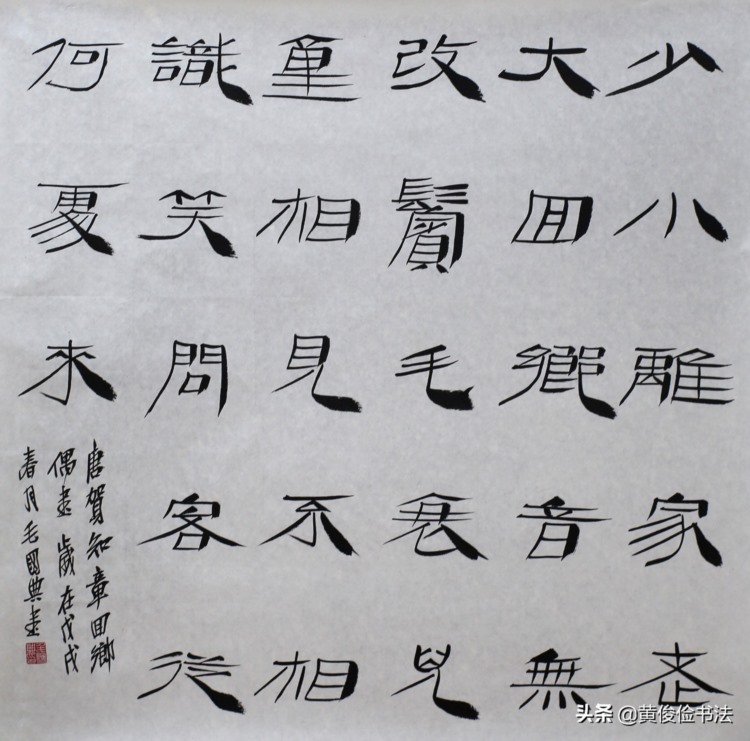 少小離家老
大回鄉音無
改鬢毛衰兒
童相見不相
識笑問客從
何處來
唐賀知章回鄉
偶書 歲在戊戌
春月毛國典書
头条 @黄俊俭书法